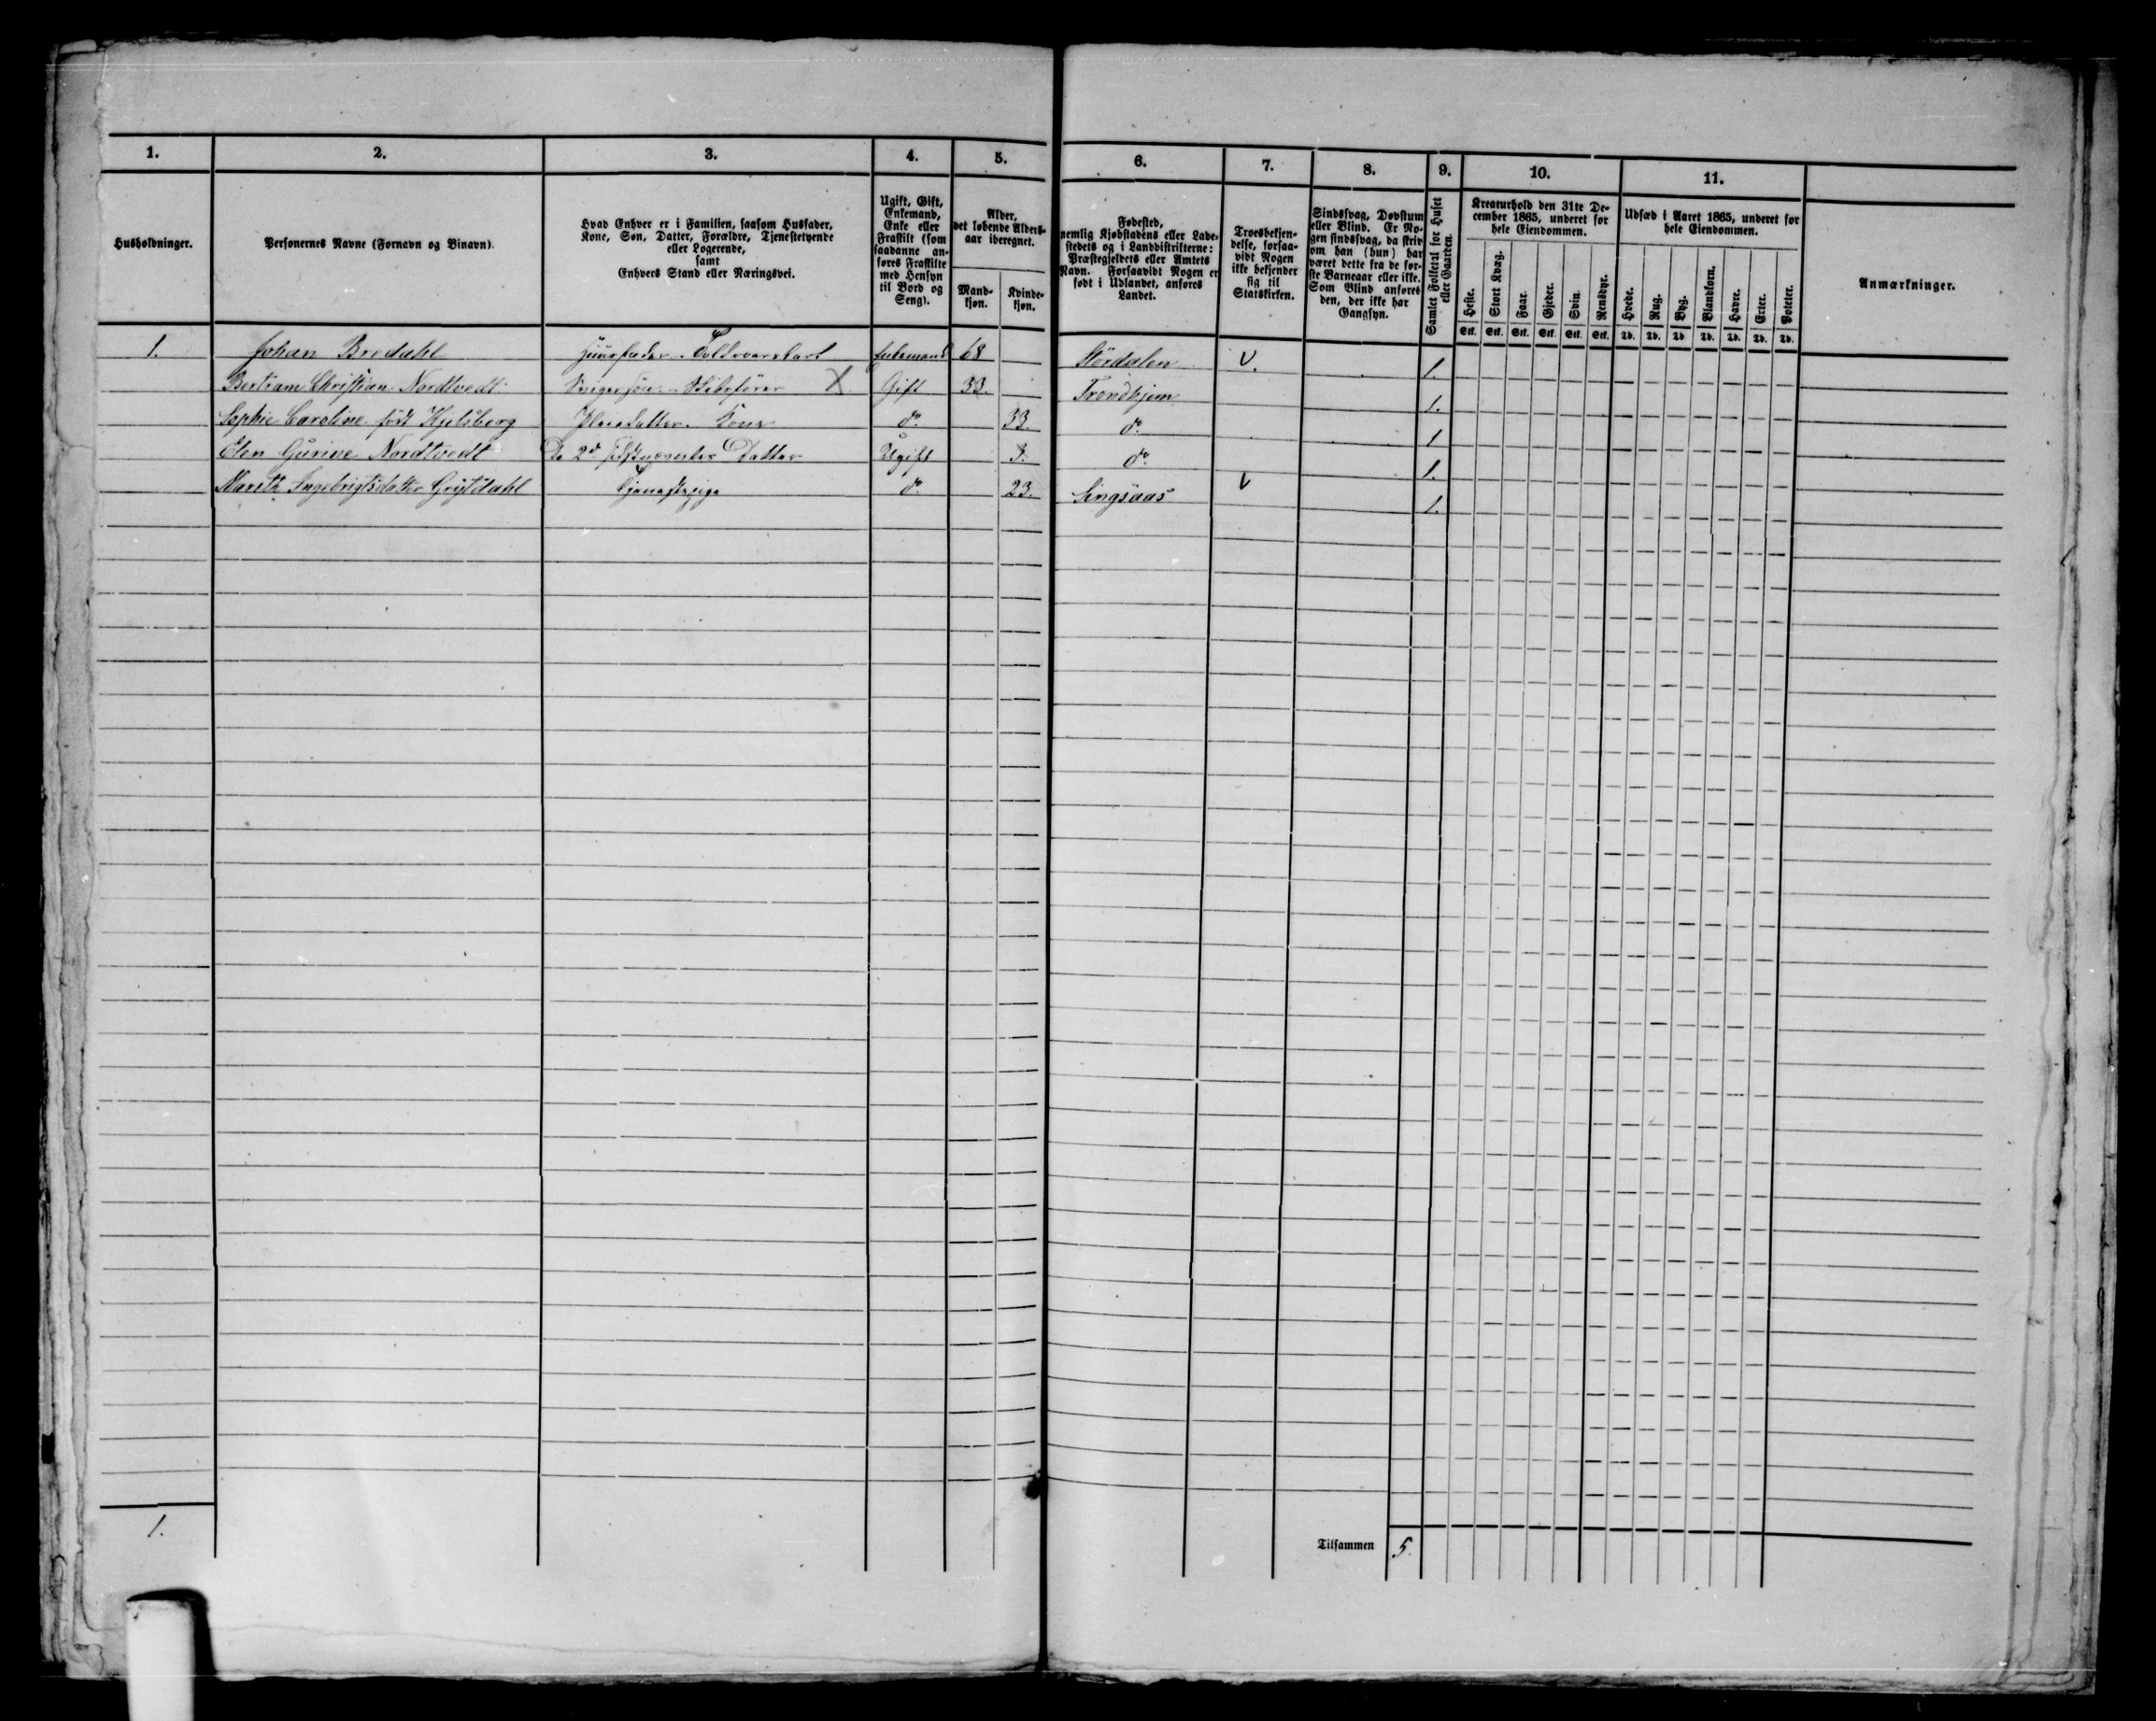 1. 2. 3. 4. 5. 6. 7. 8. 9. 10. 11.
Husholdninger.
Personernes Navne (Fornavn og Binavn).
Hvad Enhver er i Familien, saasom Husfader,
Kone, Søn, Datter, Forældre, Tjenestetyende
eller Logerende,
samt
Enhvers Stand eller Næringsvei.
Ugift, Gift,
Enkemand,
Enke eller
Fraskilt (som
saadanne an-
føres Fraskilte
med Hensyn
til Bord og
Seng).
Alder,
det løbende Alders-
aar iberegnet.
Mand-
kjøn.
Kvinde-
kjøn.
Fødested,
nemlig Kjøbstadens eller Lade-
stedets og i Landdistrikterne:
Præstegjeldets eller Amtets
Navn. Forsaavidt Nogen er
født i Udlandet, anføres
Landet.
Troesbekjen-
delse, forsaa-
vidt Nogen
ikke bekjender
sig til
Statskirken.
Sindssvag, Døvstum
eller Blind. Er No-
gen sindssvag, da skriv
om han (hun) har
været dette fra de før-
ste Barneaar eller ikke.
Som Blind anføres
den, der ikke har
Gangsyn.
Samlet Folketal for Huset
eller Gaarden.
Kreaturhold den 31te De-
cember 1865, underet for
hele Eiendommen.
Heste. Stort Kvæg. Faar. Gjeder. Svin. Rensdyr.
Stk. Stk. Stk. Stk. Stk. Stk.
Udsæd i Aaret 1865, underet for
hele Eiendommen.
Hvede. Rug. Byg. Blandkorn. Havre. Erter. Poteter.
Td. Td. Td. Td. Td. Td. Td.
Anmærkninger.
1. Johan Bredahl Huusfader. Enkemand 68 Størdalen V. 1.
Bertram Christian Nordtvedt Svigersøn. Skibsfører X Gift 33. Trondhjem 1.
Sophie Caroline født Hjelsberg Kone do. 33. do. 1
Elen Gurine Nordtvedt De 2de sidstnævntes Datter Ugift 3. do. 1.
Marith Ingebrigtsdatter Grytdahl Tjenestepige do. 23. Singsaas V 1.
1.
Tilsammen 5.